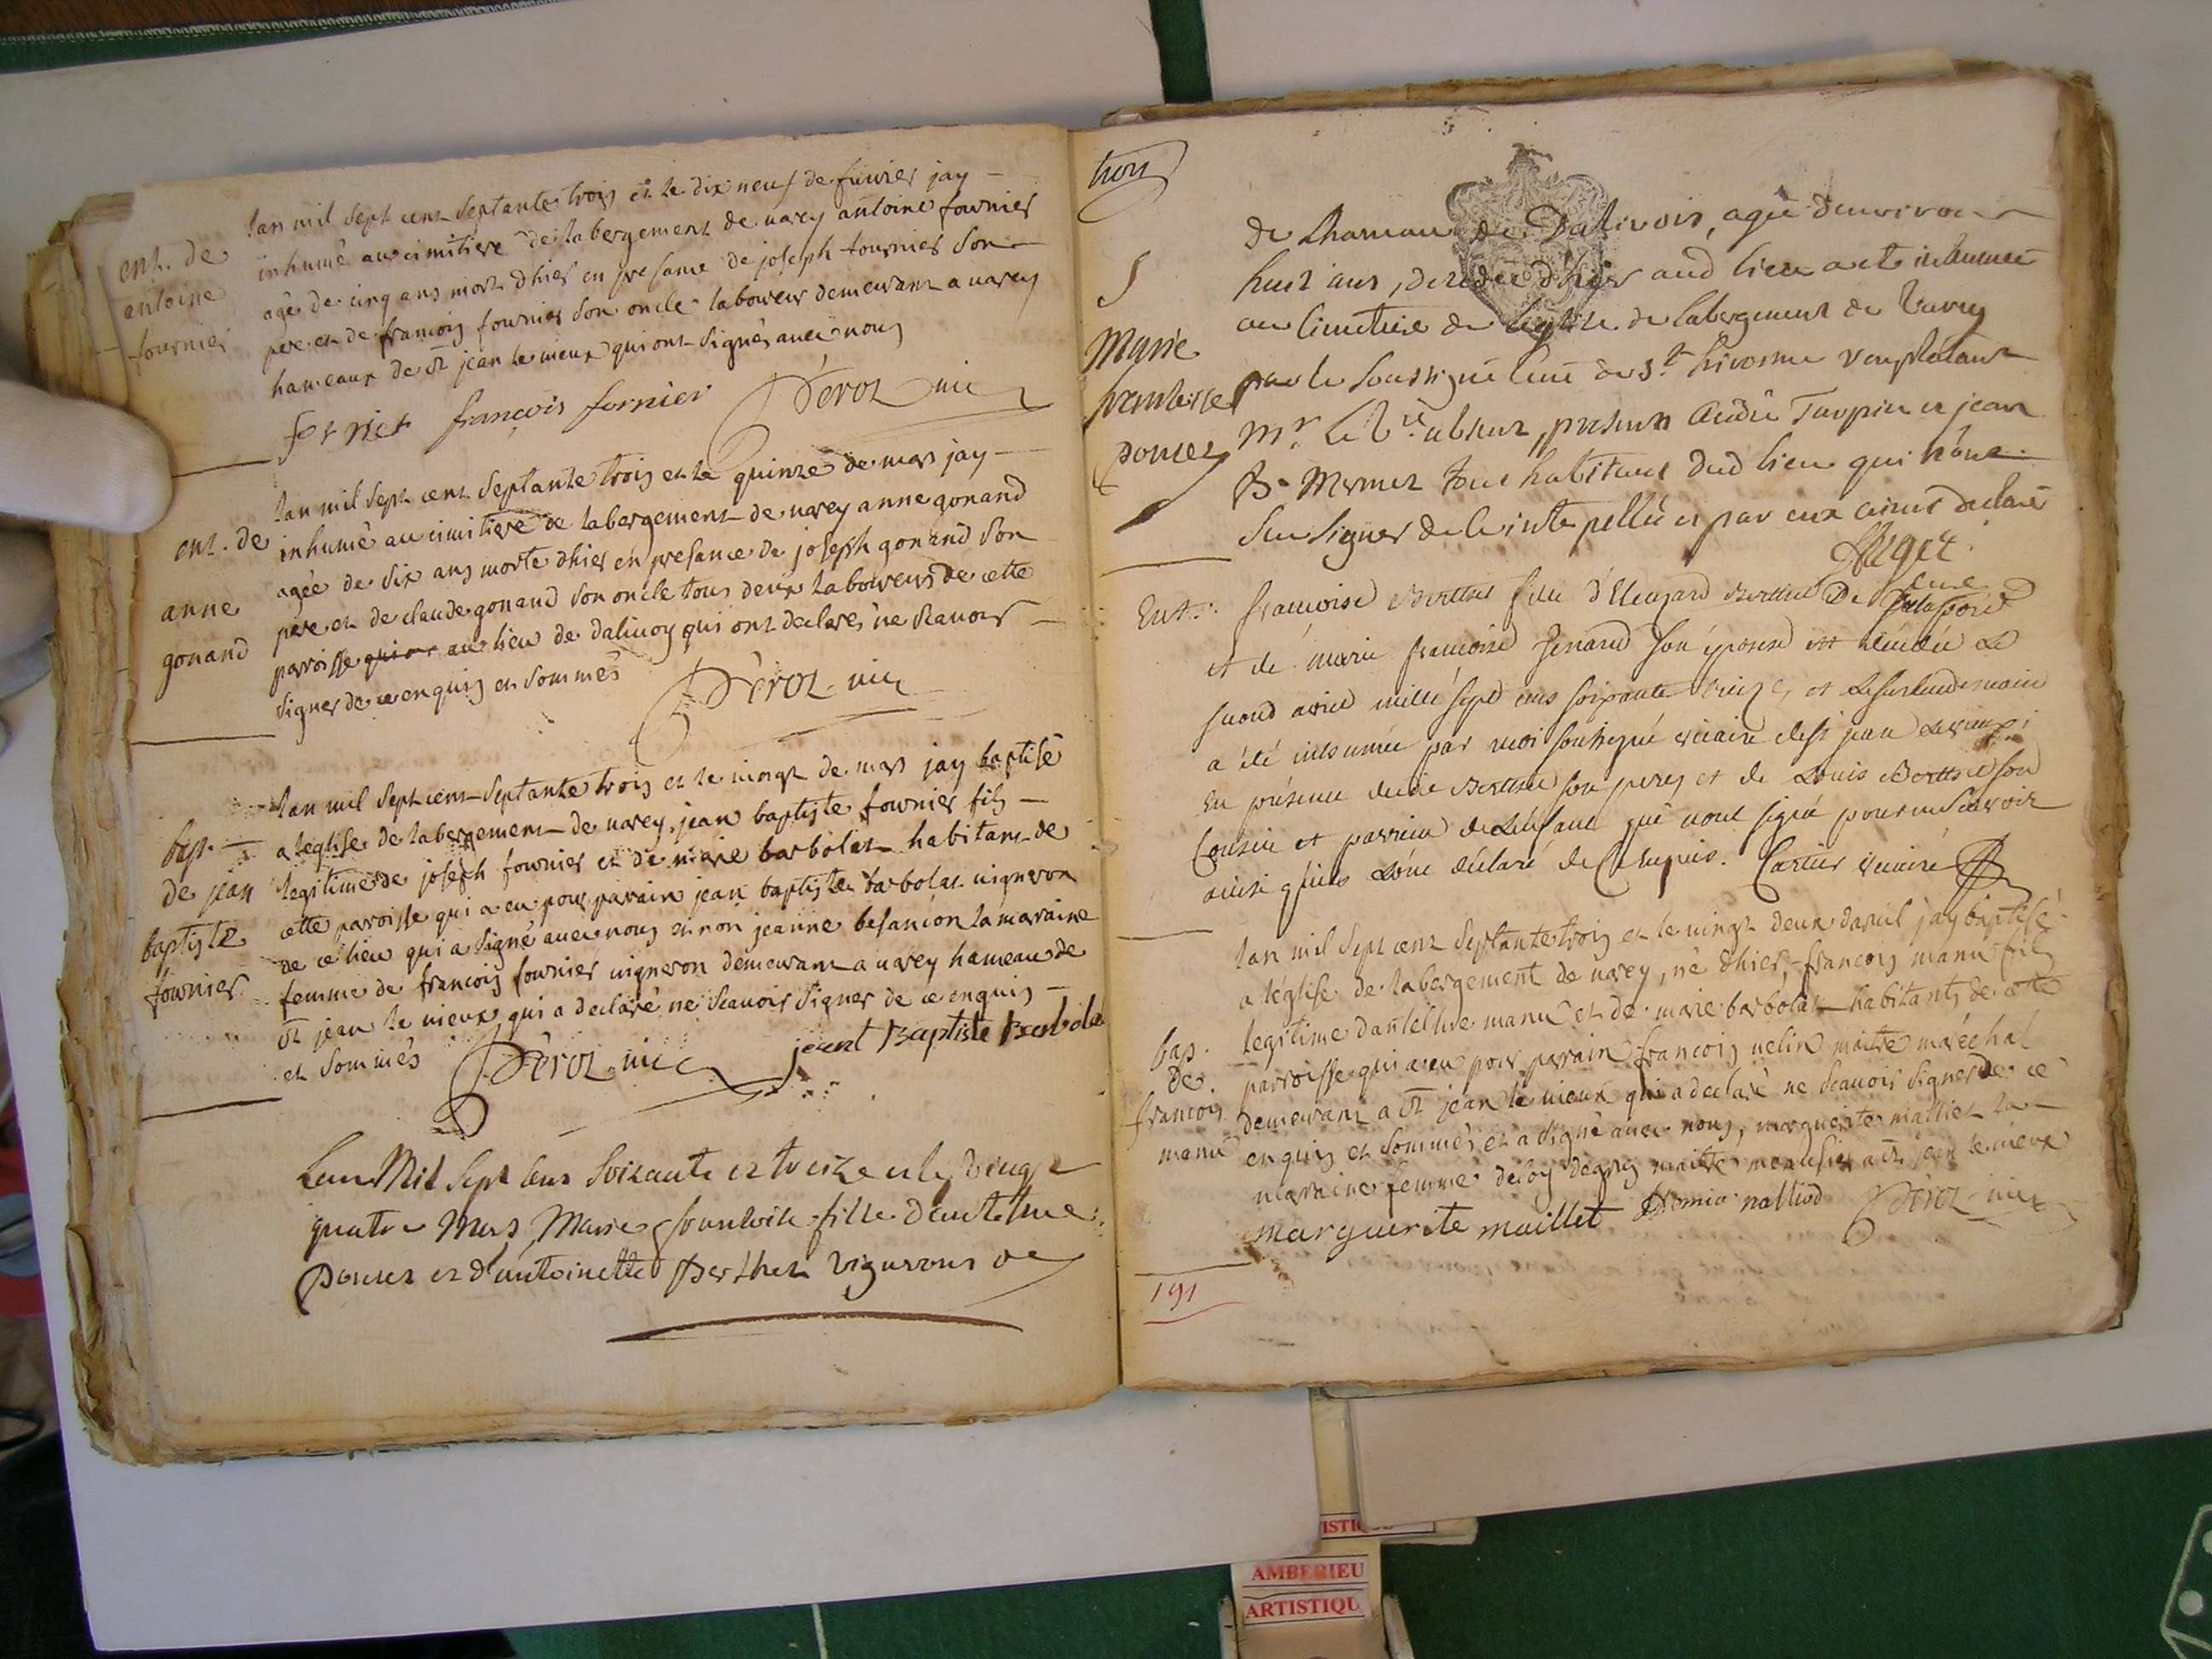 ent. de
antoine
fournier
lan mil sept cent septante trois et le dix neuf de fuvrier jay
inhumé au cimitiere de labergement de varey antoine fournier
agé de cinq ans mort dhier en presance de joseph fournier son
pere et de francois fournier son oncle laboureur demeurant a varey
hameaux de st jean le vieux qui ont signés avec nous
françois fornier Dèroz vic
ent. de
anne
gonand
lan mil sept cent septante trois et le quinze de mars jay
inhumé au cimitiere de labergement de varey anne gonand
agée de six ans morte dhier en presance de joseph gonand son
pere et de claude gonand son oncle tous deux laboureurs de cette
paroisse au lieu de dalivoy qui ont declarés ne scavoir
signer de ce enquis et sommés
Dèroz vic
bap.
de jean
baptiste
fournier
lan mil sept cent septante trois et le vingt de mars jay baptisé
a leglise de labergement de varey, jean baptiste fournier fils
legitime de joseph fournier et de marie barbolat habitant de
cette paroisse qui a eu pour parain jean baptiste barbolat vigneron
de ce lieu qui a signé avec nous et non jeanne besancon la maraine
femme de francois fournier vigneron demeurant a varey hameau de
st jean le vieux qui a declaré ne scavoir signer de ce enquis
et sommés Dèroz vic jeant Baptiste Barbola
Lan Mil sept cens soixante et treize et le vingt
quatre Mars Marie francoise fille dantelme
Poncet et d'antoinette Berthet vignerons de
trois
Marie
francoise
poncet
de Lhameau de Dalivois, agée denviron
huit ans, decedée d'hier aud lieu a eté inhumée
au Cimetiere de leglise de labergement de Varey
par le soussigné Curé de st hierosme remplacant
Mr le absent, presents André Turpin et jean
B. Mermet tous habitans dud lieu qui n'ont
sceu signer de ce interpellés et par eux ainsi declaré
Auger
curé
Ent.
françoise Berthet fille d'Eleazard Berthet De
et de marie francoise son épouse est décédée Le
second avril mille sept cens soixante treize, et Le surlendemain
a été inhumée par moi soussigné vicaire de st jean Levieux
en présence dudit Berthet son pere, et de Louis Berthet son
Cousin et parrain de Lenfant qui n'ont signé pour ne Scavoir
ainsi qu'ils L'ont déclaré de ce requis. Cartier vicaire
bap.
de
francois
manu
lan mil sept cent septante trois et le vingt deux davril jay baptisé
a léglise de labergement de varey, né dhier, francois manu fils
legitime dantelme manu et de marie barbolat habitants de cette
parroisse qui a eu pour parain francois velin maitre maréchal
demeurant a st jean le vieux qui a declaré ne scavoir signer de ce
enquis et sommés et a signé avec nous, marguerite malliet la
maraine femme deloy maitre a st jean le vieux
marguerite maillet Dèroz vic
191
AMBERIEU
ARTISTIQU